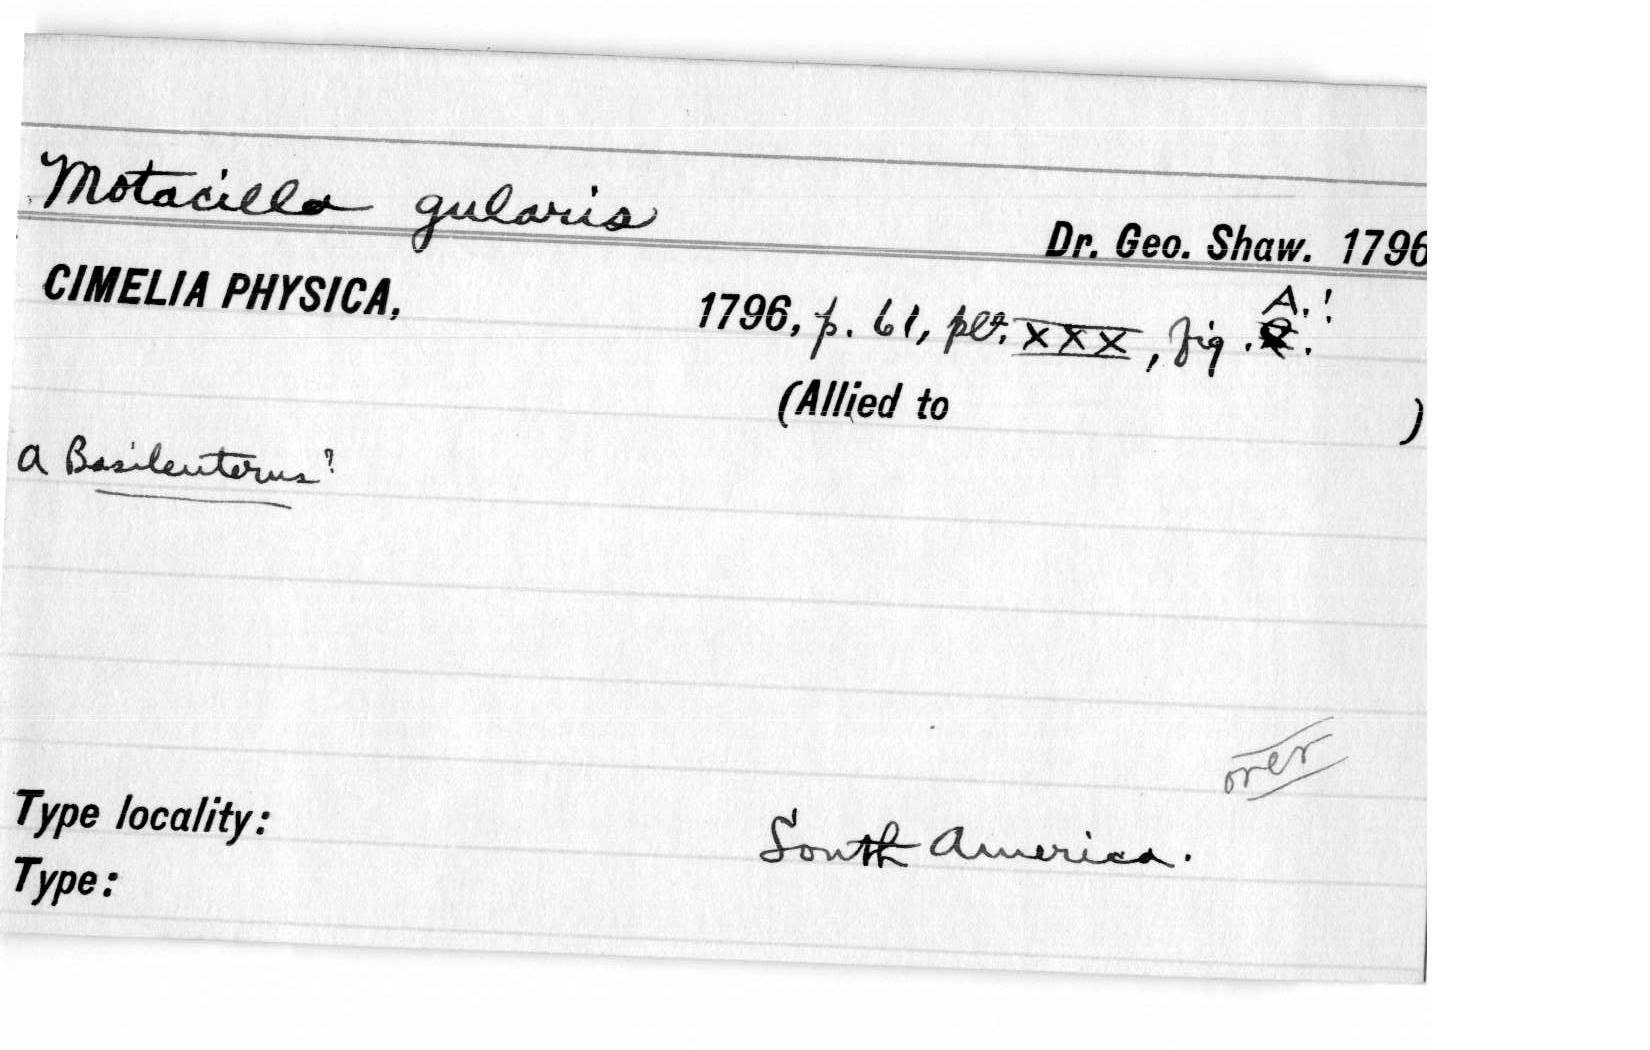 Motacilla gularis
Dr. Geo. Shaw. 1796
CIMELIA PHYSICA, 1796, p. 61, plt. XXX, fig. A.!
(Allied to )
a Basileuterus?
over
Type locality: South America.
Type: